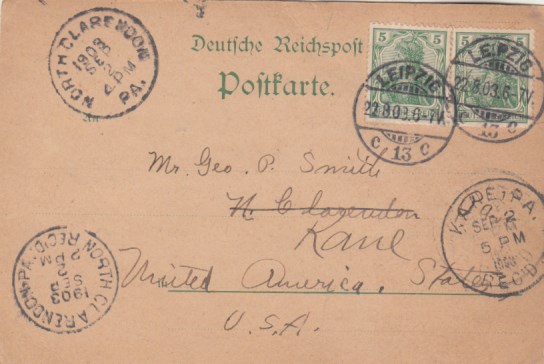 NORTH CLARENDON
1903
SEP
PM
PA.
Deutsche Reichspost
Postkarte.
An
5 5
5 5
LEIPZIG
22.8.03.6-7N.
C 13 C
LEIPZIG
22.8.03.6-7N.
13 C
Mr. Geo. P. Smith
N Clarendon
Kane
United America, States
U.S.A.
KANE, PA.
SEP
5 PM
REC'D.
NORTH CLARENDON, PA.
REC'D.
1903
SEP
2
PM